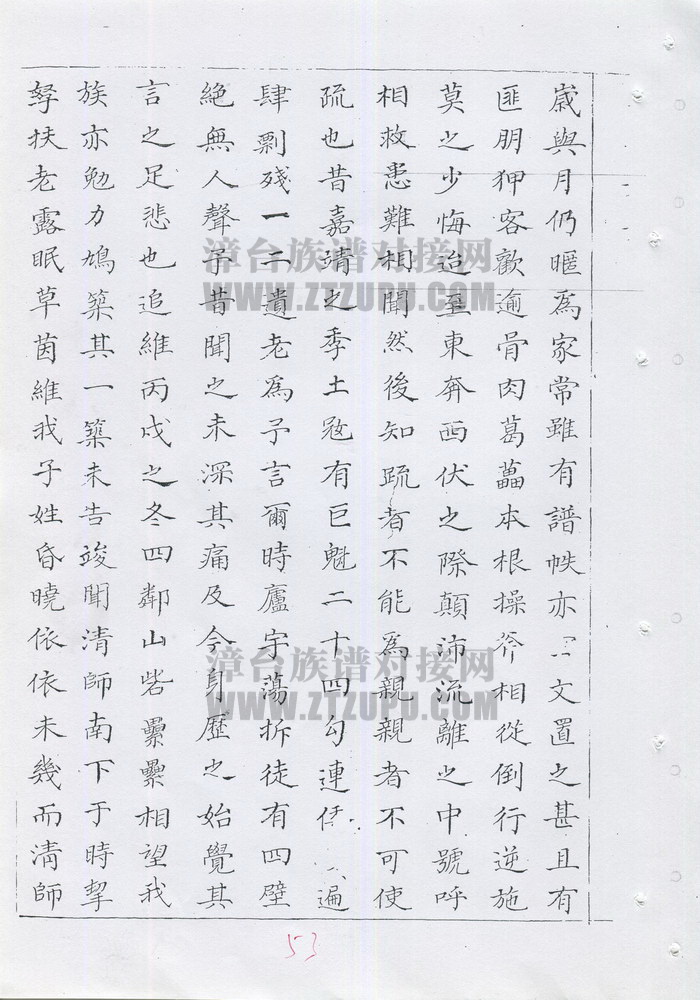 歲與月仍暱為家常雖有譜帙亦文置之甚且有
匪朋狎客歡逾骨肉葛藟本根操斧相從倒行逆施
莫之少悔迨至東奔西伏之際顛沛流離之中號呼
相救患難相聞然後知疏者不能為親親者不可使
疏也昔嘉靖之季土寇有巨魁二十四勾連遍
肆剽殘一二遺老為予言爾時廬宇蕩折徒有四壁
絕無人聲予昔聞之未深其痛及今身歷之始覺其
言之足悲也追維丙戌之冬四鄰山砦纍纍相望我
族亦勉力鳩築其一築未告竣聞清師南下于時挈
孥扶老露眠草茵維我子姓昏曉依依未幾而清師
漳台族谱对接网
WWW.ZTZUPU.COM
漳台族谱对接网
WWW.ZTZUPU.COM
53